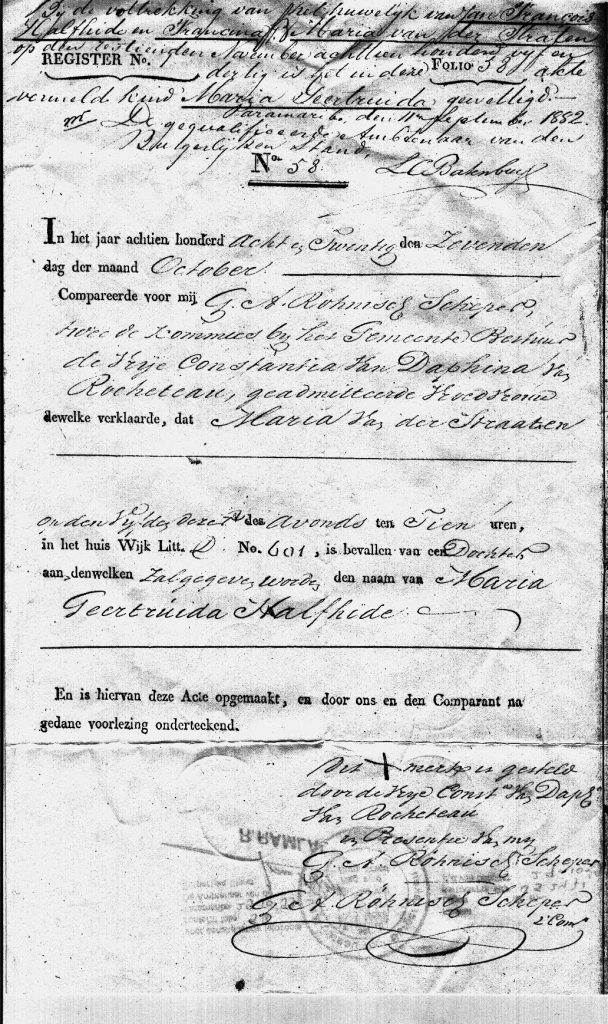 Bij de voltrekking van het huwelijk van Jan Francois
Halfhide en Francina Maria van der Straten
op den zestienden November achttien honderd vijf en
REGISTER No. FOLIO 58
dertig is het in deze akte
vermeld kind Maria Geertruida gewettigd.
Paramaribo, den 11n September 1882
De gequalificeerde Ambtenaar van den
Burgerlijken Stand,
No. 58.
In het jaar achtien honderd Acht en Twentig den Zevenden
dag der maand October
Compareerde voor mij G. A. Röhnisch Scheper,
twee de Kommies by het Gemeente Bestuur
de Vrye Constantia Van Daphina Van
Rocheteau, geadmitteerde Vroedvrouw
dewelke verklaarde, dat Maria Van der Straaten
op den Vyfden dezer des Avonds ten Tien uren,
in het huis Wijk Litt. D No. 601, is bevallen van een Dochter
aan denwelken Zal gegeven worden den naam van Maria
Geertruida Halfhide
En is hiervan deze Acte opgemaakt, en door ons en den Comparant na
gedane voorlezing onderteekend.
Dit + merk is gesteld
door de Vrye Const Van Daph
Van Rocheteau
in Presentie Van my
G. A. Röhnisch Scheper
R. RAMLA
G. A. Röhnisch Scheper
2 Com